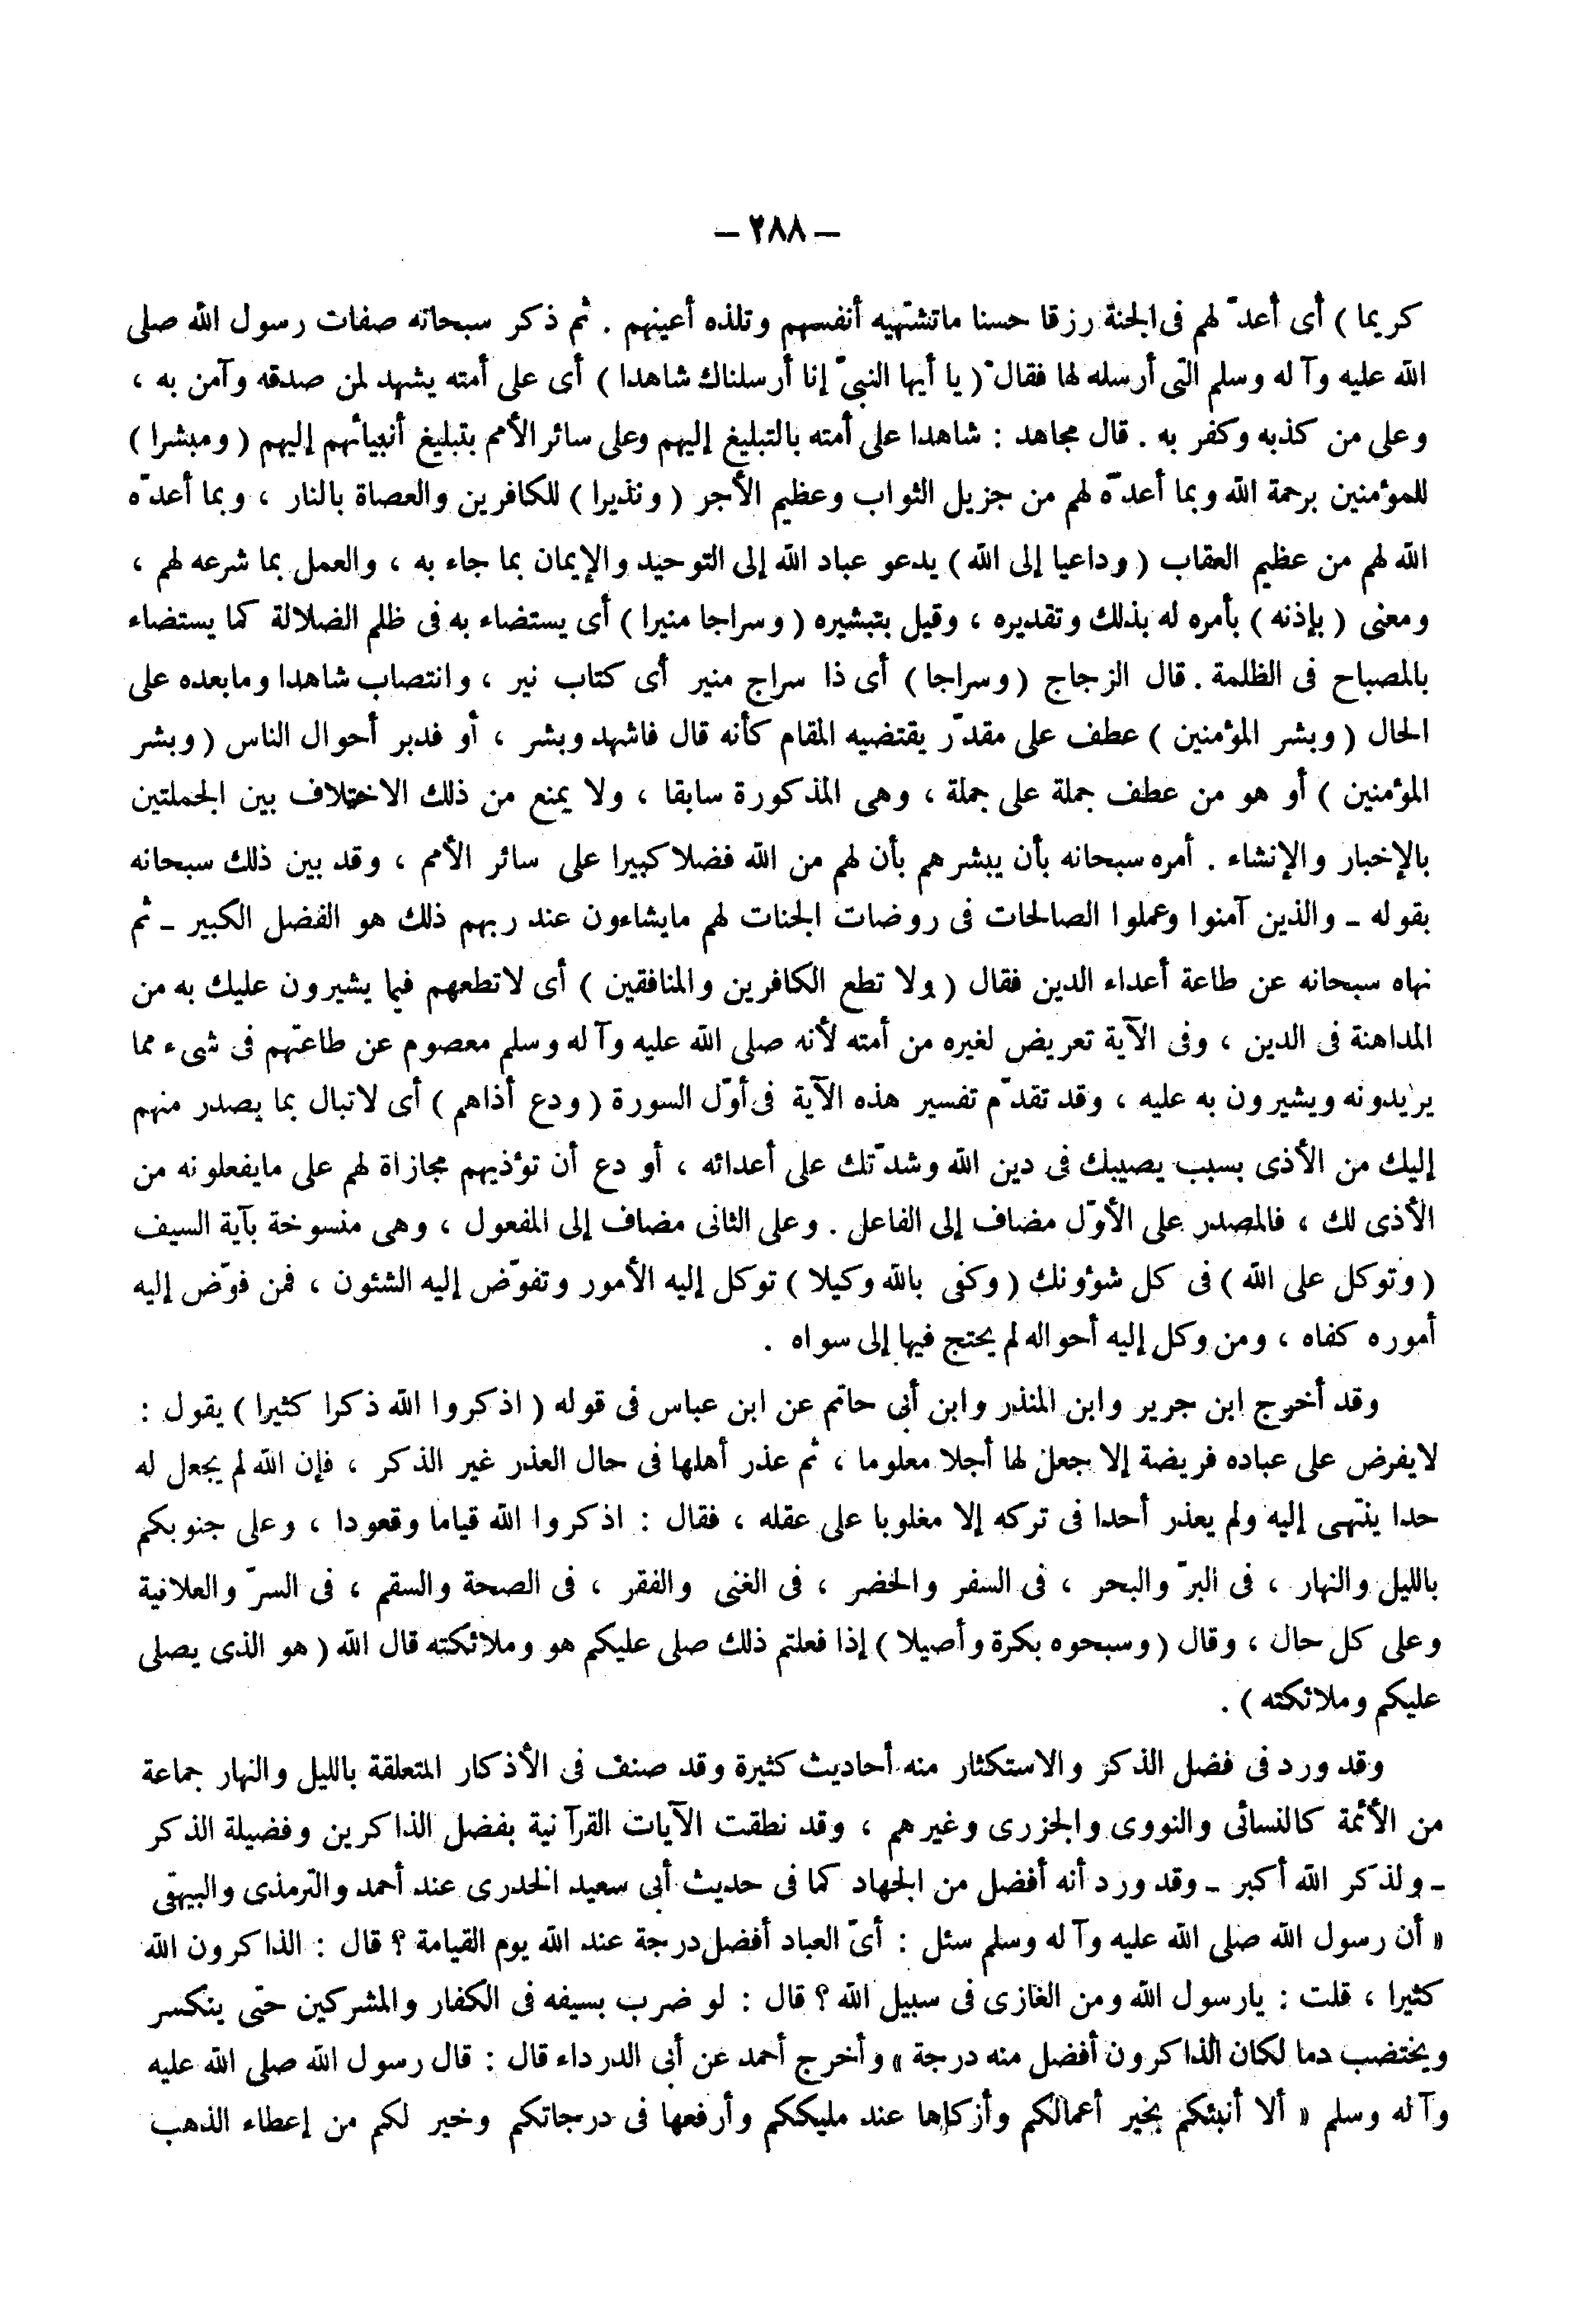 — ٢٨٨ —
كريما ) أى أعدّ لهم فى الجنة رزقا حسنا ماتشتهيه أنفسهم وتلذه أعينهم . ثم ذكر سبحانه صفات رسول الله صلى
الله عليه وآله وسلم التى أرسله لها فقال ( يا أيها النبىّ إنا أرسلناك شاهدا ) أى على أمته يشهد لمن صدقه وآمن به ،
وعلى من كذبه وكفر به . قال مجاهد : شاهدا على أمته بالتبليغ إليهم وعلى سائر الأمم بتبليغ أنبيائهم إليهم ( ومبشرا )
للمؤمنين برحمة الله وبما أعدّه لهم من جزيل الثواب وعظيم الأجر ( ونذيرا ) للكافرين والعصاة بالنار ، وبما أعدّه
الله لهم من عظيم العقاب ( وداعيا إلى الله ) يدعو عباد الله إلى التوحيد والإيمان بما جاء به ، والعمل بما شرعه لهم ،
ومعنى ( بإذنه ) بأمره له بذلك وتقديره ، وقيل بتبشيره ( وسراجا منيرا ) أى يستضاء به فى ظلم الضلالة كما يستضاء
بالمصباح فى الظلمة . قال الزجاج ( وسراجا ) أى ذا سراج منير أى كتاب نير ، وانتصاب شاهدا ومابعده على
الحال ( وبشر المؤمنين ) عطف على مقدّر يقتضيه المقام كأنه قال فاشهد وبشر ، أو فدبر أحوال الناس ( وبشر
المؤمنين ) أو هو من عطف جملة على جملة ، وهى المذكورة سابقا ، ولا يمنع من ذلك الاختلاف بين الجملتين
بالإخبار والإنشاء . أمره سبحانه بأن يبشرهم بأن لهم من الله فضلا كبيرا على سائر الأمم ، وقد بين ذلك سبحانه
بقوله ـ والذين آمنوا وعملوا الصالحات فى روضات الجنات لهم مايشاءون عند ربهم ذلك هو الفضل الكبير ـ ثم
نهاه سبحانه عن طاعة أعداء الدين فقال ( ولا تطع الكافرين والمنافقين ) أى لاتطعهم فيما يشيرون عليك به من
المداهنة فى الدين ، وفى الآية تعريض لغيره من أمته لأنه صلى الله عليه وآله وسلم معصوم عن طاعتهم فى شىء مما
يريدونه ويشيرون به عليه ، وقد تقدّم تفسير هذه الآية فى أوّل السورة ( ودع أذاهم ) أى لاتبال بما يصدر منهم
إليك من الأذى بسبب يصيبك فى دين الله وشدّتك على أعدائه ، أو دع أن تؤذيهم مجازاة لهم على مايفعلونه من
الأذى لك ، فالمصدر على الأوّل مضاف إلى الفاعل . وعلى الثانى مضاف إلى المفعول ، وهى منسوخة بآية السيف
( وتوكل على الله ) فى كل شؤونك ( وكفى بالله وكيلا ) توكل إليه الأمور وتفوّض إليه الشئون ، فمن فوّض إليه
أموره كفاه ، ومن وكل إليه أحواله لم يحتج فيها إلى سواه .
وقد أخرج ابن جرير وابن المنذر وابن أبى حاتم عن ابن عباس فى قوله ( اذكروا الله ذكرا كثيرا ) يقول :
لايفرض على عباده فريضة إلا جعل لها أجلا معلوما ، ثم عذر أهلها فى حال العذر غير الذكر ، فإن الله لم يجعل له
حدا ينتهى إليه ولم يعذر أحدا فى تركه إلا مغلوبا على عقله ، فقال : اذكروا الله قياما وقعودا ، وعلى جنوبكم
بالليل والنهار ، فى البرّ والبحر ، فى السفر والحضر ، فى الغنى والفقر ، فى الصحة والسقم ، فى السرّ والعلانية
وعلى كل حال ، وقال ( وسبحوه بكرة وأصيلا ) إذا فعلتم ذلك صلى عليكم هو وملائكته قال الله ( هو الذى يصلى
عليكم وملائكته ) .
وقد ورد فى فضل الذكر والاستكثار منه أحاديث كثيرة وقد صنف فى الأذكار المتعلقة بالليل والنهار جماعة
من الأئمة كالنسائى والنووى والجزرى وغيرهم ، وقد نطقت الآيات القرآنية بفضل الذاكرين وفضيلة الذكر
ـ ولذكر الله أكبر ـ وقد ورد أنه أفضل من الجهاد كما فى حديث أبى سعيد الخدرى عند أحمد والترمذى والبيهقى
« أن رسول الله صلى الله عليه وآله وسلم سئل : أىّ العباد أفضل درجة عند الله يوم القيامة ؟ قال : الذاكرون الله
كثيرا ، قلت : يارسول الله ومن الغازى فى سبيل الله ؟ قال : لو ضرب بسيفه فى الكفار والمشركين حتى ينكسر
ويختضب دما لكان الذاكرون أفضل منه درجة » وأخرج أحمد عن أبى الدرداء قال : قال رسول الله صلى الله عليه
وآله وسلم « ألا أنبئكم بخير أعمالكم وأزكاها عند مليككم وأرفعها فى درجاتكم وخير لكم من إعطاء الذهب